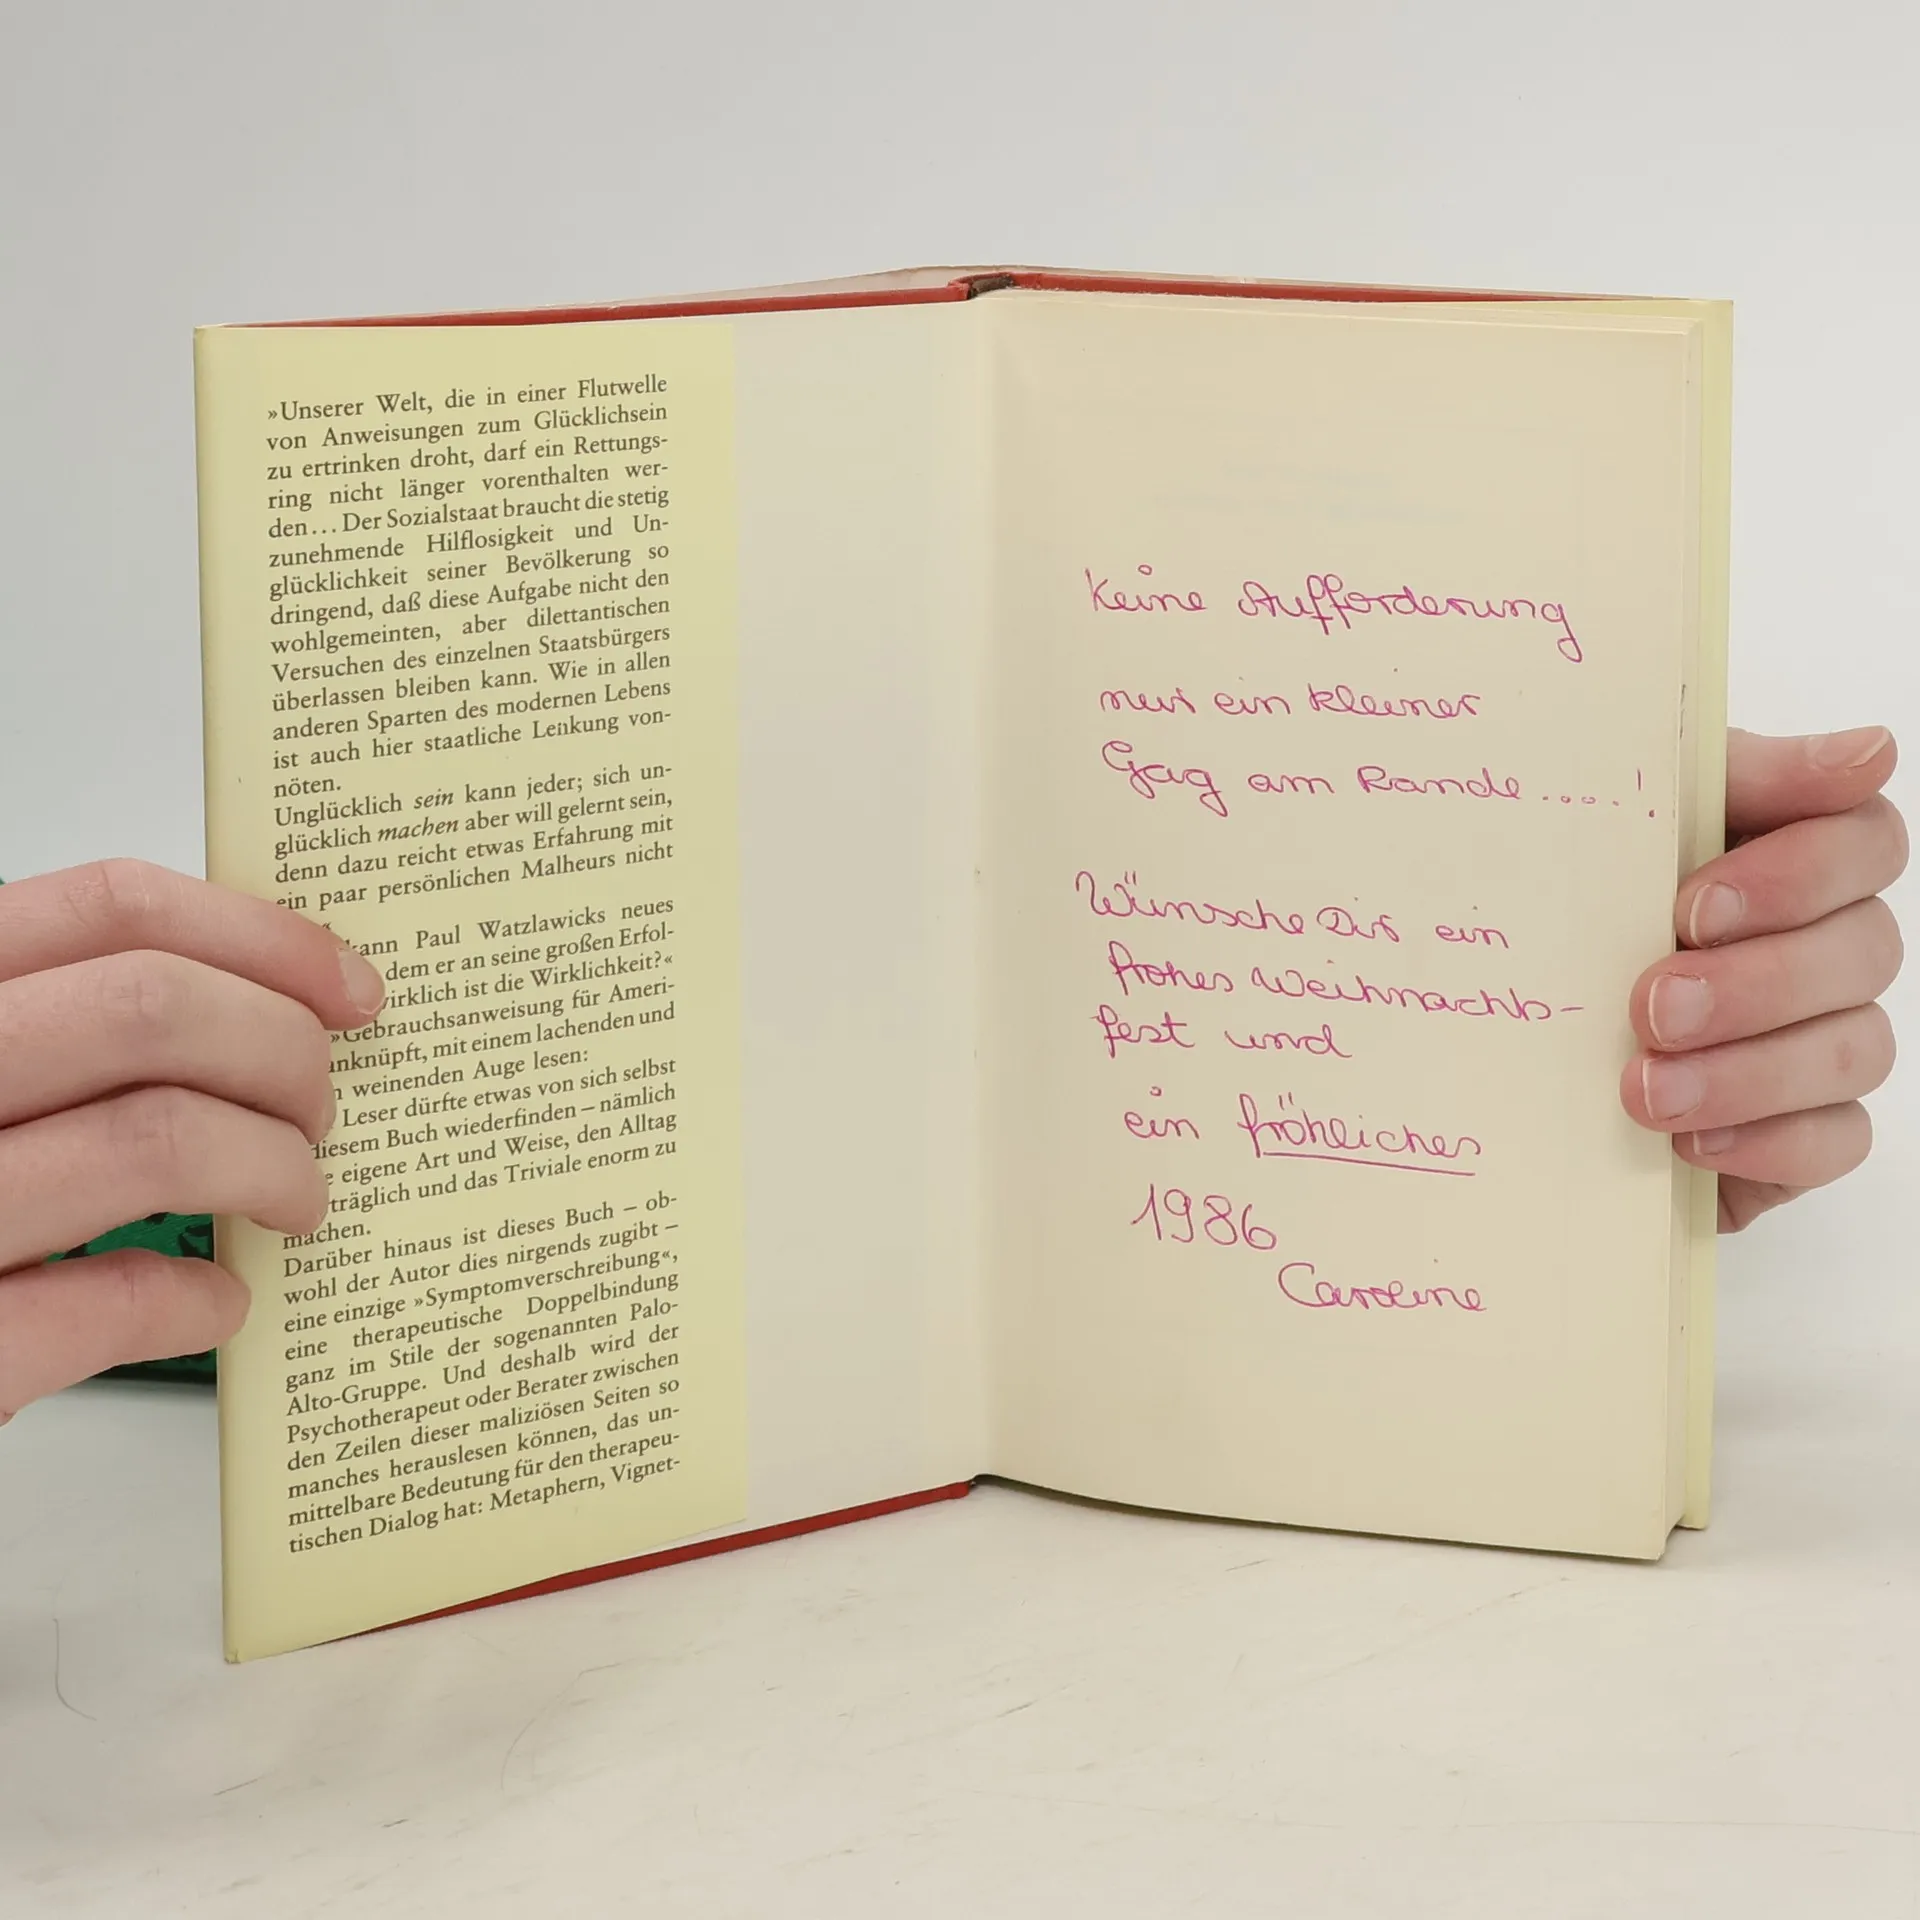 »Unserer Welt, die in einer Flutwelle
von Anweisungen zum Glücklichsein
zu ertrinken droht, darf ein Rettungs-
ring nicht länger vorenthalten wer-
den... Der Sozialstaat braucht die stetig
zunehmende Hilflosigkeit und Un-
glücklichkeit seiner Bevölkerung so
dringend, daß diese Aufgabe nicht den
wohlgemeinten, aber dilettantischen
Versuchen des einzelnen Staatsbürgers
überlassen bleiben kann. Wie in allen
anderen Sparten des modernen Lebens
ist auch hier staatliche Lenkung von-
nöten.
Unglücklich sein kann jeder; sich un-
glücklich machen aber will gelernt sein,
denn dazu reicht etwas Erfahrung mit
ein paar persönlichen Malheurs nicht
«
kann Paul Watzlawicks neues
dem er an seine großen Erfol-
wirklich ist die Wirklichkeit?«
»Gebrauchsanweisung für Ameri-
anknüpft, mit einem lachenden und
weinenden Auge lesen:
Leser dürfte etwas von sich selbst
diesem Buch wiederfinden – nämlich
eigene Art und Weise, den Alltag
träglich und das Triviale enorm zu
machen.
Darüber hinaus ist dieses Buch – ob-
wohl der Autor dies nirgends zugibt –
eine einzige »Symptomverschreibung«,
eine therapeutische Doppelbindung
ganz im Stile der sogenannten Palo-
Alto-Gruppe. Und deshalb wird der
Psychotherapeut oder Berater zwischen
den Zeilen dieser maliziösen Seiten so
manches herauslesen können, das un-
mittelbare Bedeutung für den therapeu-
tischen Dialog hat: Metaphern, Vignet-
Keine Aufforderung
nur ein kleiner
Gag am Rande.....!
Wünsche Dir ein
frohes Weihnachts-
fest und
ein fröhliches
1986
Caroline